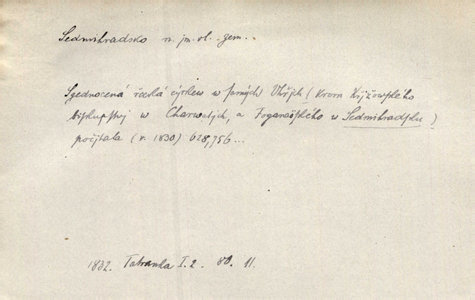 Sedmihradsko n. jm. vl. zem..
Sgednocená řecká cýrkew w samých Uhřjch (krom Križowského
biskupstwj w Charwatjch, a Fogarašského w Sedmihradsku)
počjtala (r. 1830) 628,756...
1832. Tatranka I. 2. 80. 11.